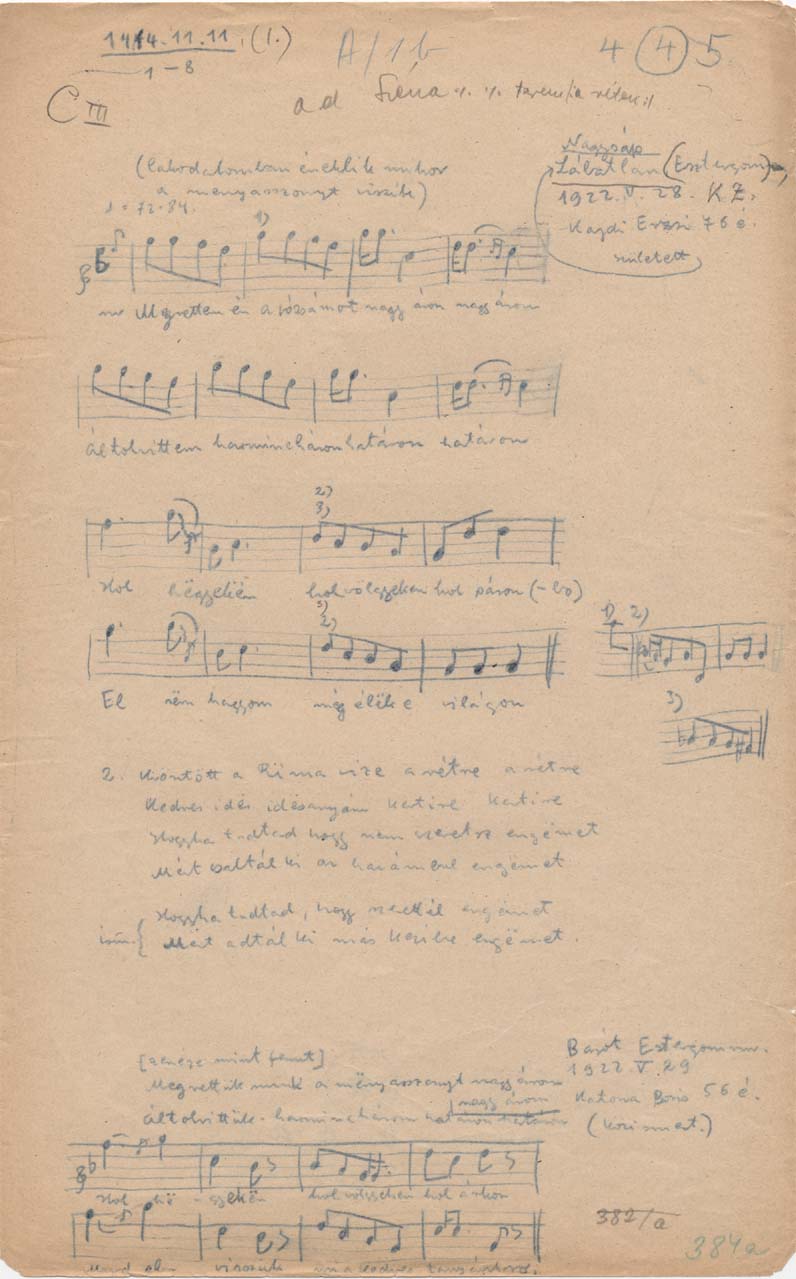 1414.11.11. (1.)
1-8
A/1b
4 4 5
C III
ad
(lakodalomban éneklik mikor
a menyasszonyt viszik)
♩=72-84.
Nagysáp
Lábatlan (Esztergom)
1922. V. 28. KZ.
Kajdi Erzsi 76 é.
született
1)
Megvettem én a rózsámot nagy áron nagy áron
Általvittem harminchárom határon határon
2)
3)
Hol hëgyekën hol völgyeken hol sáron (-bo)
3)
2)
El nëm hagyom még élëk e világon
1) 2)
3)
2. Kiöntött a Rima vize a rétre a rétre
Kedves idës idësanyám kertire kertire
Hogyha tudtad hogy nem szeretsz engëmet
Mért
engëmet
Hogyha tudtad, hogy engëmet
ism. { Mért adtál ki más kezibe engëmet.
[zenéje mint fennt]
Megvettük mink a mënyasszonyt nagy áron
nagy áron
Általvittük harminchárom határon határon
Bajót Esztergom m.
1922. V. 29
Katona Boris 56 é.
(közismert.)
Hol hë-gyekën hol völgyeken hol árkon
382/a
384a